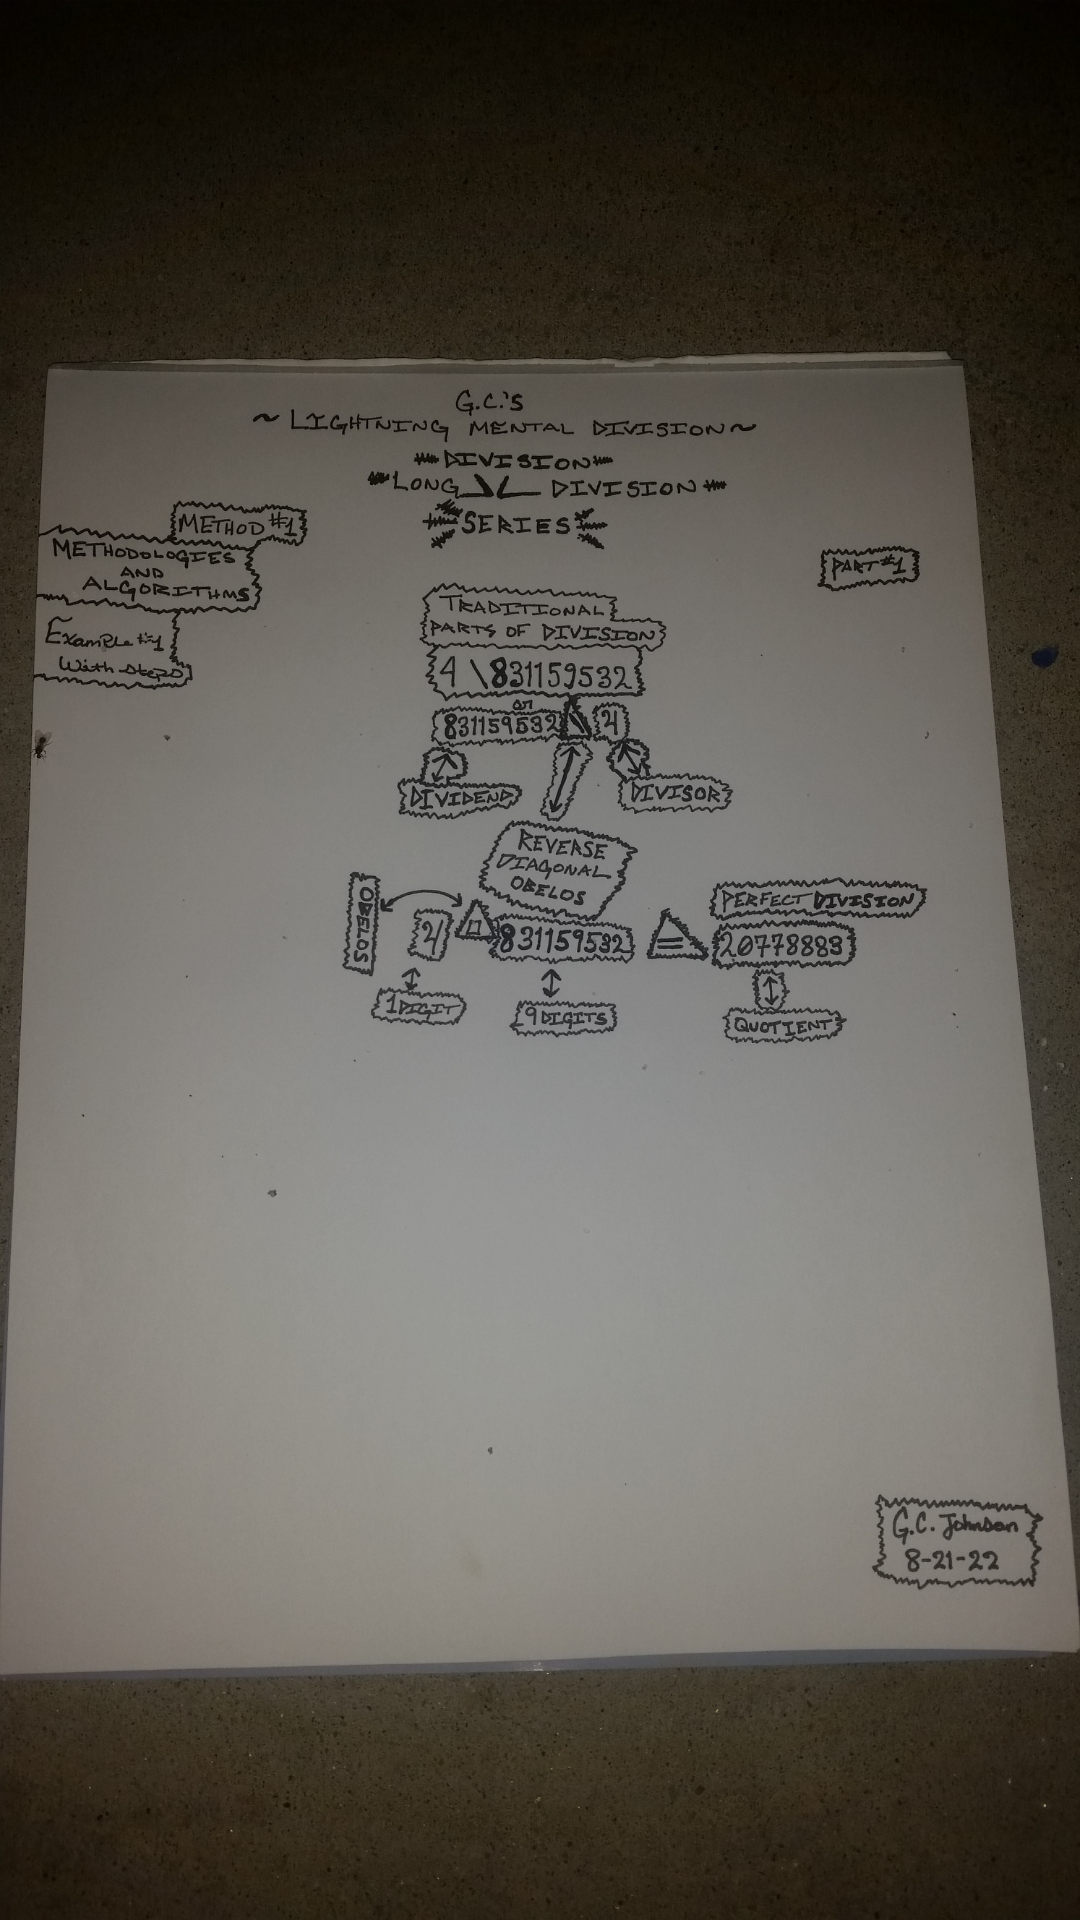 G.C.'S
~ LIGHTNING MENTAL DIVISION ~
DIVISION
LONG DIVISION
SERIES
METHOD #1
METHODOLOGIES
AND
ALGORITHMS
Example #1
With steps
PART #1
TRADITIONAL
PARTS OF DIVISION
4 \831159532
or
831159532 \ 4
DIVIDEND
DIVISOR
REVERSE
DIAGONAL
OBELOS
OBELOS
4 831159532 = 207788883
PERFECT DIVISION
1 DIGIT
9 DIGITS
QUOTIENT
G.C. Johnson
8-21-22